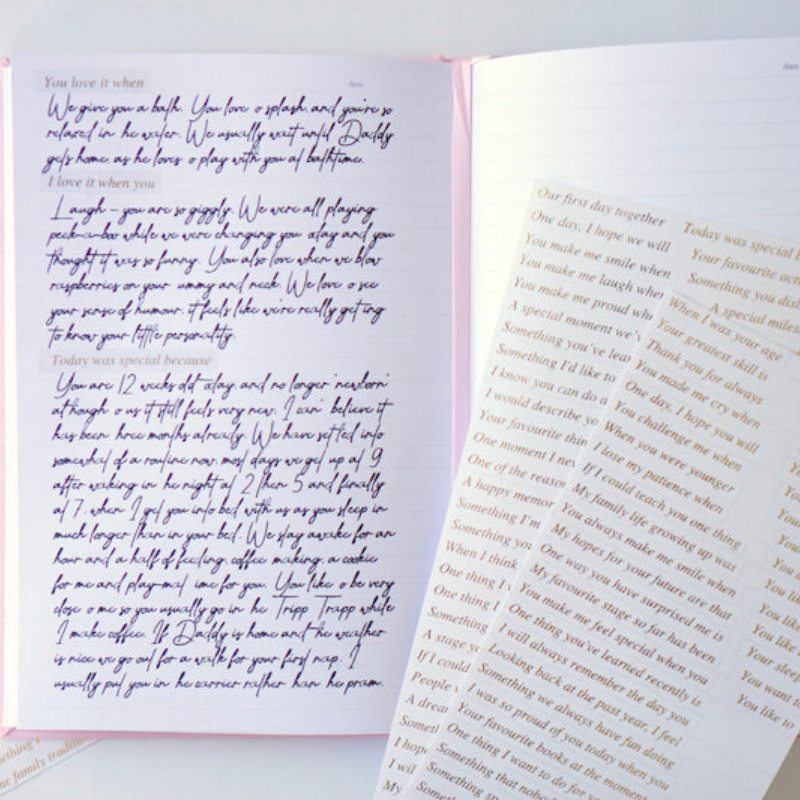 You love it when
date:
We give you a bath. You love o splash, and you're so
relaxed in he water. We usually wait until Daddy
gets home, as he loves o play with you at bathtime.
I love it when you
Laugh – you are so giggly. We were all playing
peek-a-boo while we were changing you oday and you
thought it was so funny. You also love when we blow
raspberries on your ummy and neck. We love o see
your sense of humour, it feels like we're really get ing
to know your little personality.
Today was special because
You are 12 weeks old oday, and no longer 'newborn'
al hough o us it still feels very new. I can' believe it
has been hree months already. We have set led into
somewhat of a routine now, most days we get up at 9
after waking in he night at 2 then 5 and finally
at 7, when I get you into bed with us as you sleep in
much longer than in your bed. We stay awake for an
hour and a half of feeding, coffee making, a cookie
for me and play-mat ime for you. You like o be very
close o me so you usually go in he Tripp Trapp while
I make coffee. If Daddy is home and he weather
is nice we go out for a walk for your first nap. I
usually put you in he carrier rather han he pram.
Our first day together
One day, I hope we will
You make me smile when
You make me laugh when
You make me proud
A special moment we've
Something you've
Something I'd like to
I know you can do
I would describe
Your favourite
One moment I
One of the
A happy
Something I'm
Something
When I think
One thing I
One thing I
Something
A stage
If I could
People
A
I
I
My
Today was special
Your favourite
Something you
A special
When I was your age
Your greatest skill is
Thank you for always
You made me cry when
One day, I hope you will
You challenge me when
When you were younger
I lose my patience when
If I could teach you one thing
My family life growing up was
You always make me smile when
My hopes for your future are that
One way you have surprised me is
My favourite stage so far has been
You make me feel special when you
One thing you've learned recently is
I will always remember the day you
Looking back at the past year, I feel
Something we always have fun doing
I was so proud of you today when you
Your favourite books at the moment
One thing I want to do for
Something that
Something
You like
You like
You like
Your
You want
You like to
family